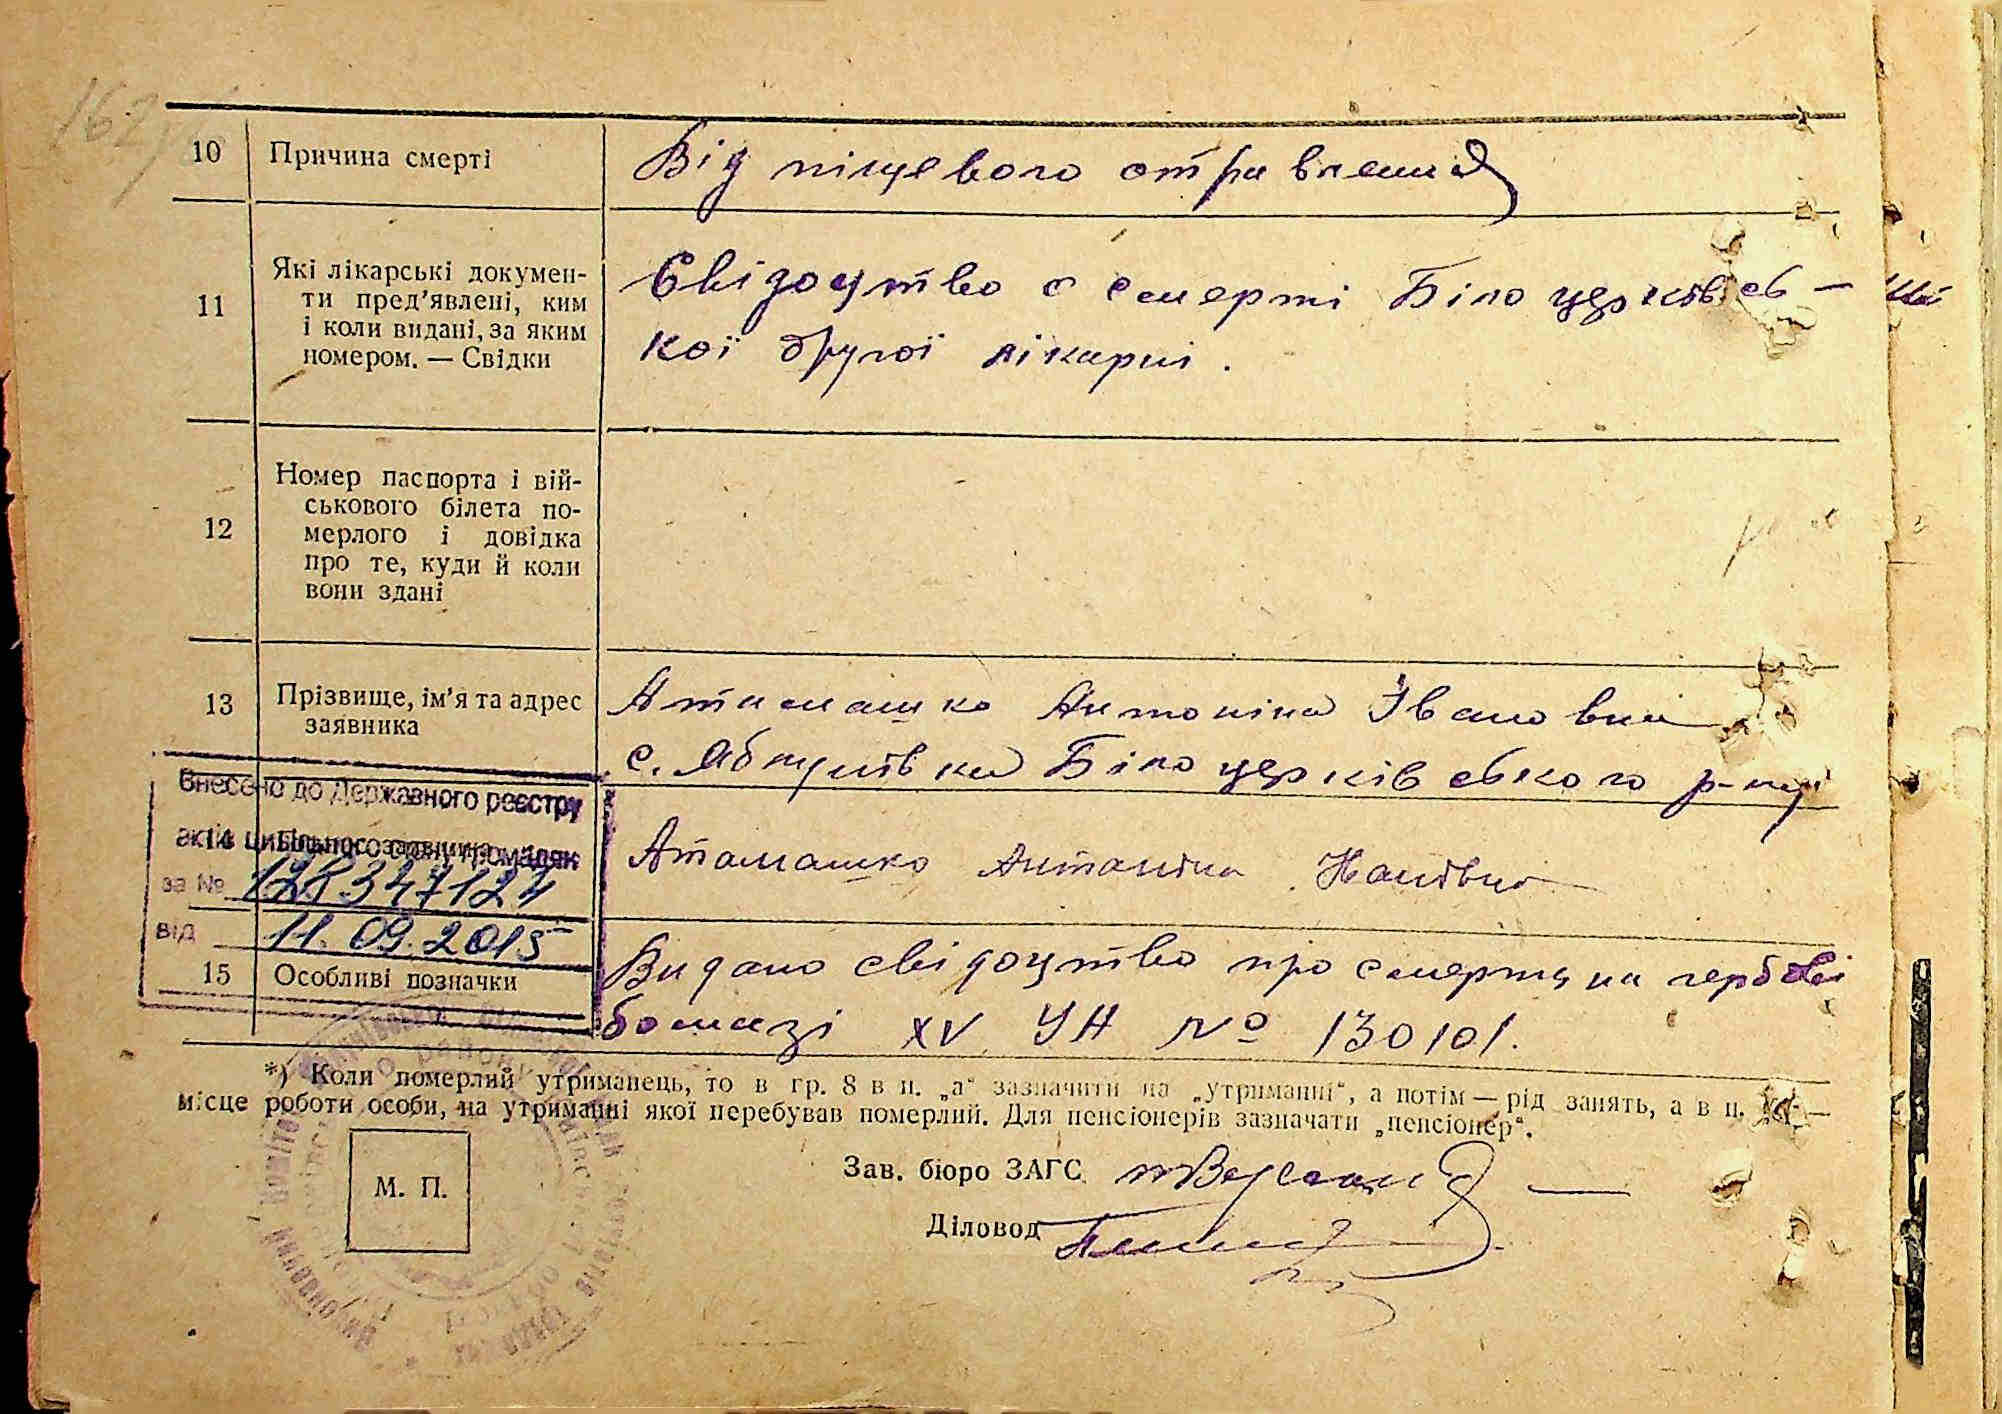 162
10 Причина смерті Від піщевого отравления
11 Які лікарські докумен-
ти пред'явлені, ким
і коли видані, за яким
номером. — Свідки
Свідоцтво о смерті Білоцерківсь-
кої другої лікарні.
12 Номер паспорта і вій-
ськового білета по-
мерлого і довідка
про те, куди й коли
вони здані
13 Прізвище, ім'я та адрес
заявника
Атамашко Антоніна Івановна
с. Яблунівка Білоцерківського р-ну
Внесено до Державного реєстру
актів цивільного стану громадян
за №
від 11.09.2015
14 Підпис заявника
Атамашко Антоніна
15 Особливі позначки
Видано свідоцтво про смерть на гербові
бомазі XV УН № 130101.
*) Коли померлий утриманець, то в гр. 8 в п. „а“ зазначити на „утриманні“, а потім — рід занять, а в п.
місце роботи особи, на утриманні якої перебував померлий. Для пенсіонерів зазначати „пенсіонер“.
М. П.
Зав. бюро ЗАГС
Діловод